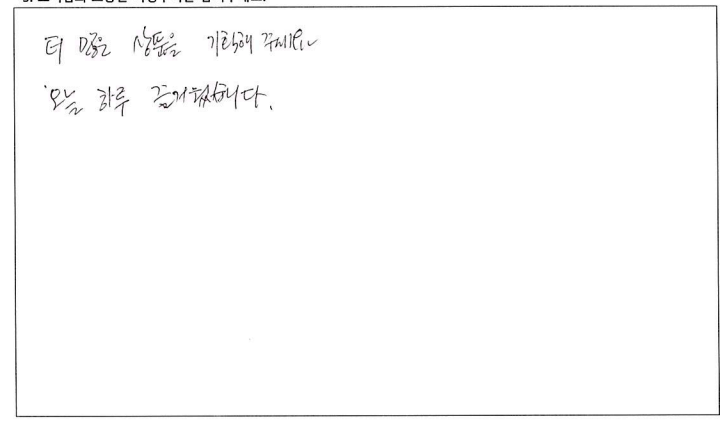 더 많은 상품을 기획해 주세요
오늘 하루 즐거웠습니다.